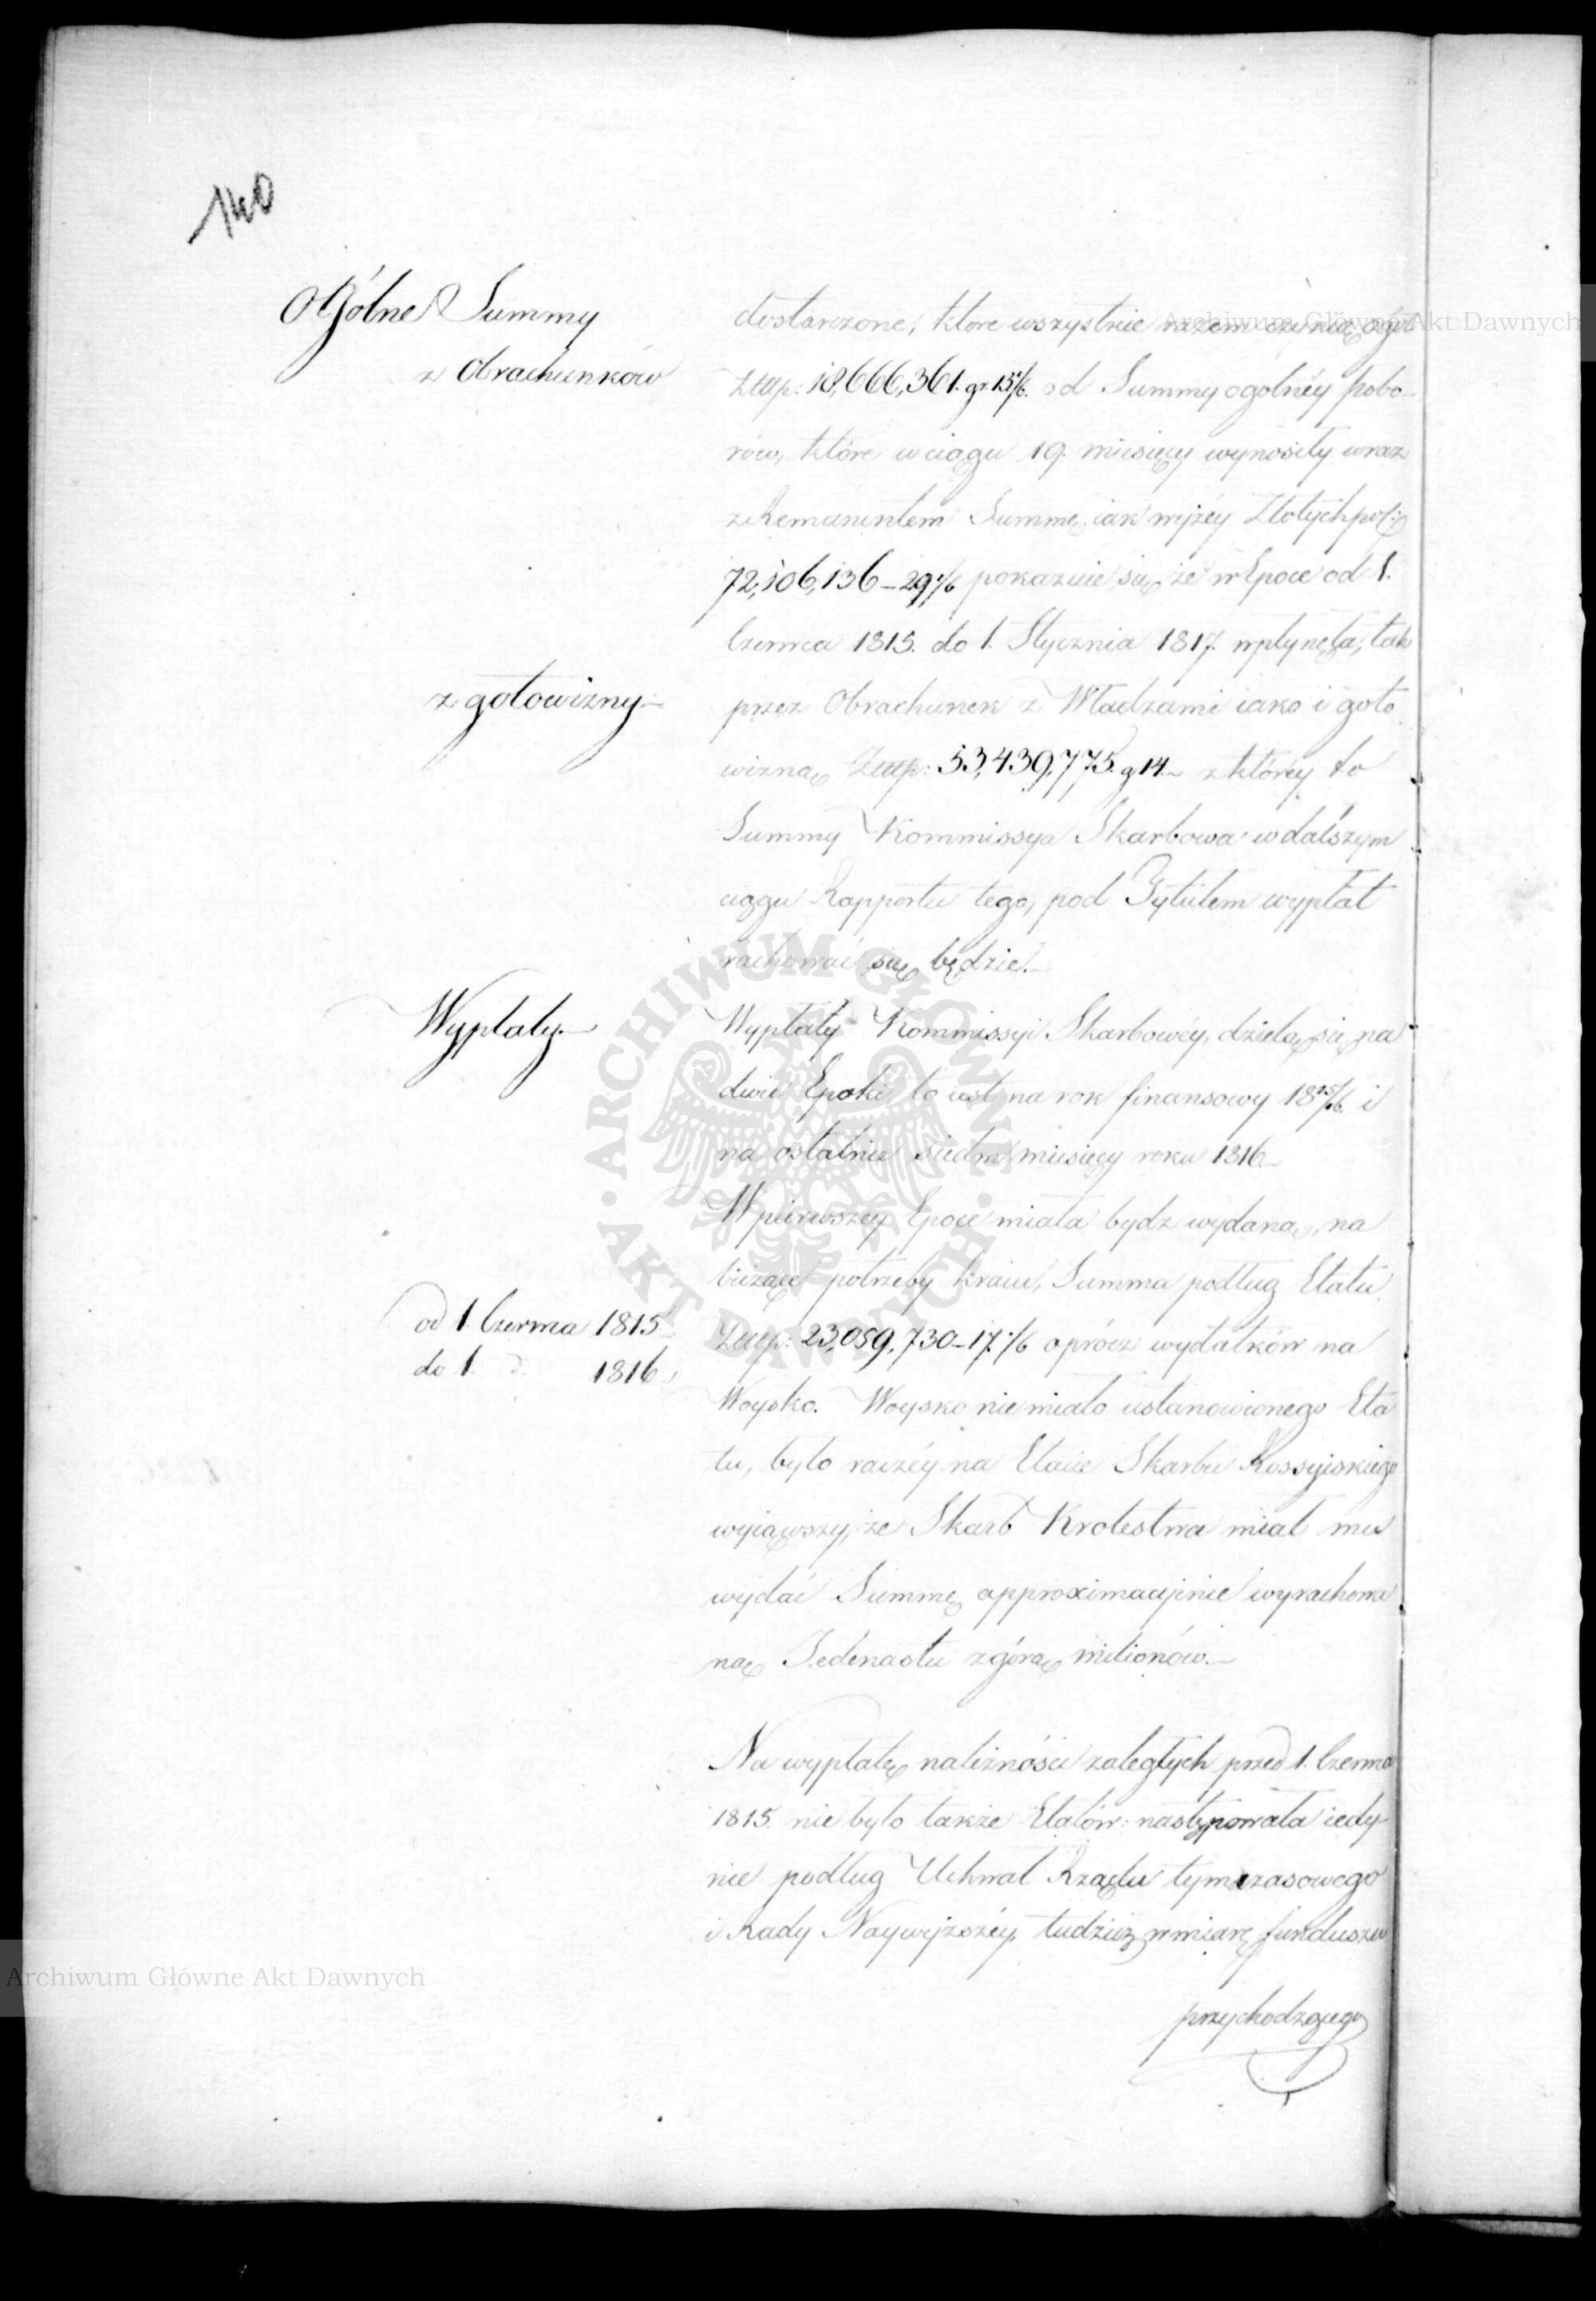 140
Ogólne Summy
z Obrachunków
dostarczone, które wszystkie razem czynią
Złłp: 18,666,361. gr 15 1/6. od Summy ogolnéy pobo-
rów, które w ciągu 19. miesięcy wynosiły wraz
z Remanentem Summę iak wyżéy Złotych pol:
72,106,136 – 29 1/6 pokazuie się że w Epoce od 1.
Czerwca 1815. do 1. Stycznia 1817. wpłynęła, tak
z gotowizny –
przez Obrachunek z Władzami iako i goto
wizną Złłp: 53,439,775. g 14 – z któréy to
Summy Kommissya Skarbowa w dalszym
ciągu Rapportu tego, pod Tytułem wypłat
rachować się będzie. –
Wypłaty. –
Wypłaty Kommissyi Skarbowéy, dzielą się na
dwie Epoki to iest na rok finansowy 18 15/16. i
na ostatnie siedm miesięcy roku 1816 –
W pierwszey Epoce miała bydz wydaną, na
bieżące potrzeby kraiu, Summa podług Etatu
od 1. Czerwca 1815 –
do 1. d. 1816
Złłp: 23,059,730 – 17. 1/6 oprócz wydatków na
Woysko. Woysko nie miało ustanowionego Eta
tu, było raczéy na Etacie Skarbu Rossyiskiego
wyiąwszy, że Skarb Krolestwa miał mu
wydać Summę approximacyinie wyrachowa
ną Jedenastu z górą milionów. –
Na wypłatę należności zaległych przed 1. Czerwca
1815. nie było także Etatów: następowała iedy-
nie podług Uchwał Rządu tymczasowego
i Rady Naywyższéy, tudzież w miarę funduszu
przychodzącego
Archiwum Główne Akt Dawnych
Archiwum Główne Akt Dawnych
ARCHIWUM GŁÓWNE · AKT DAWNYCH ·